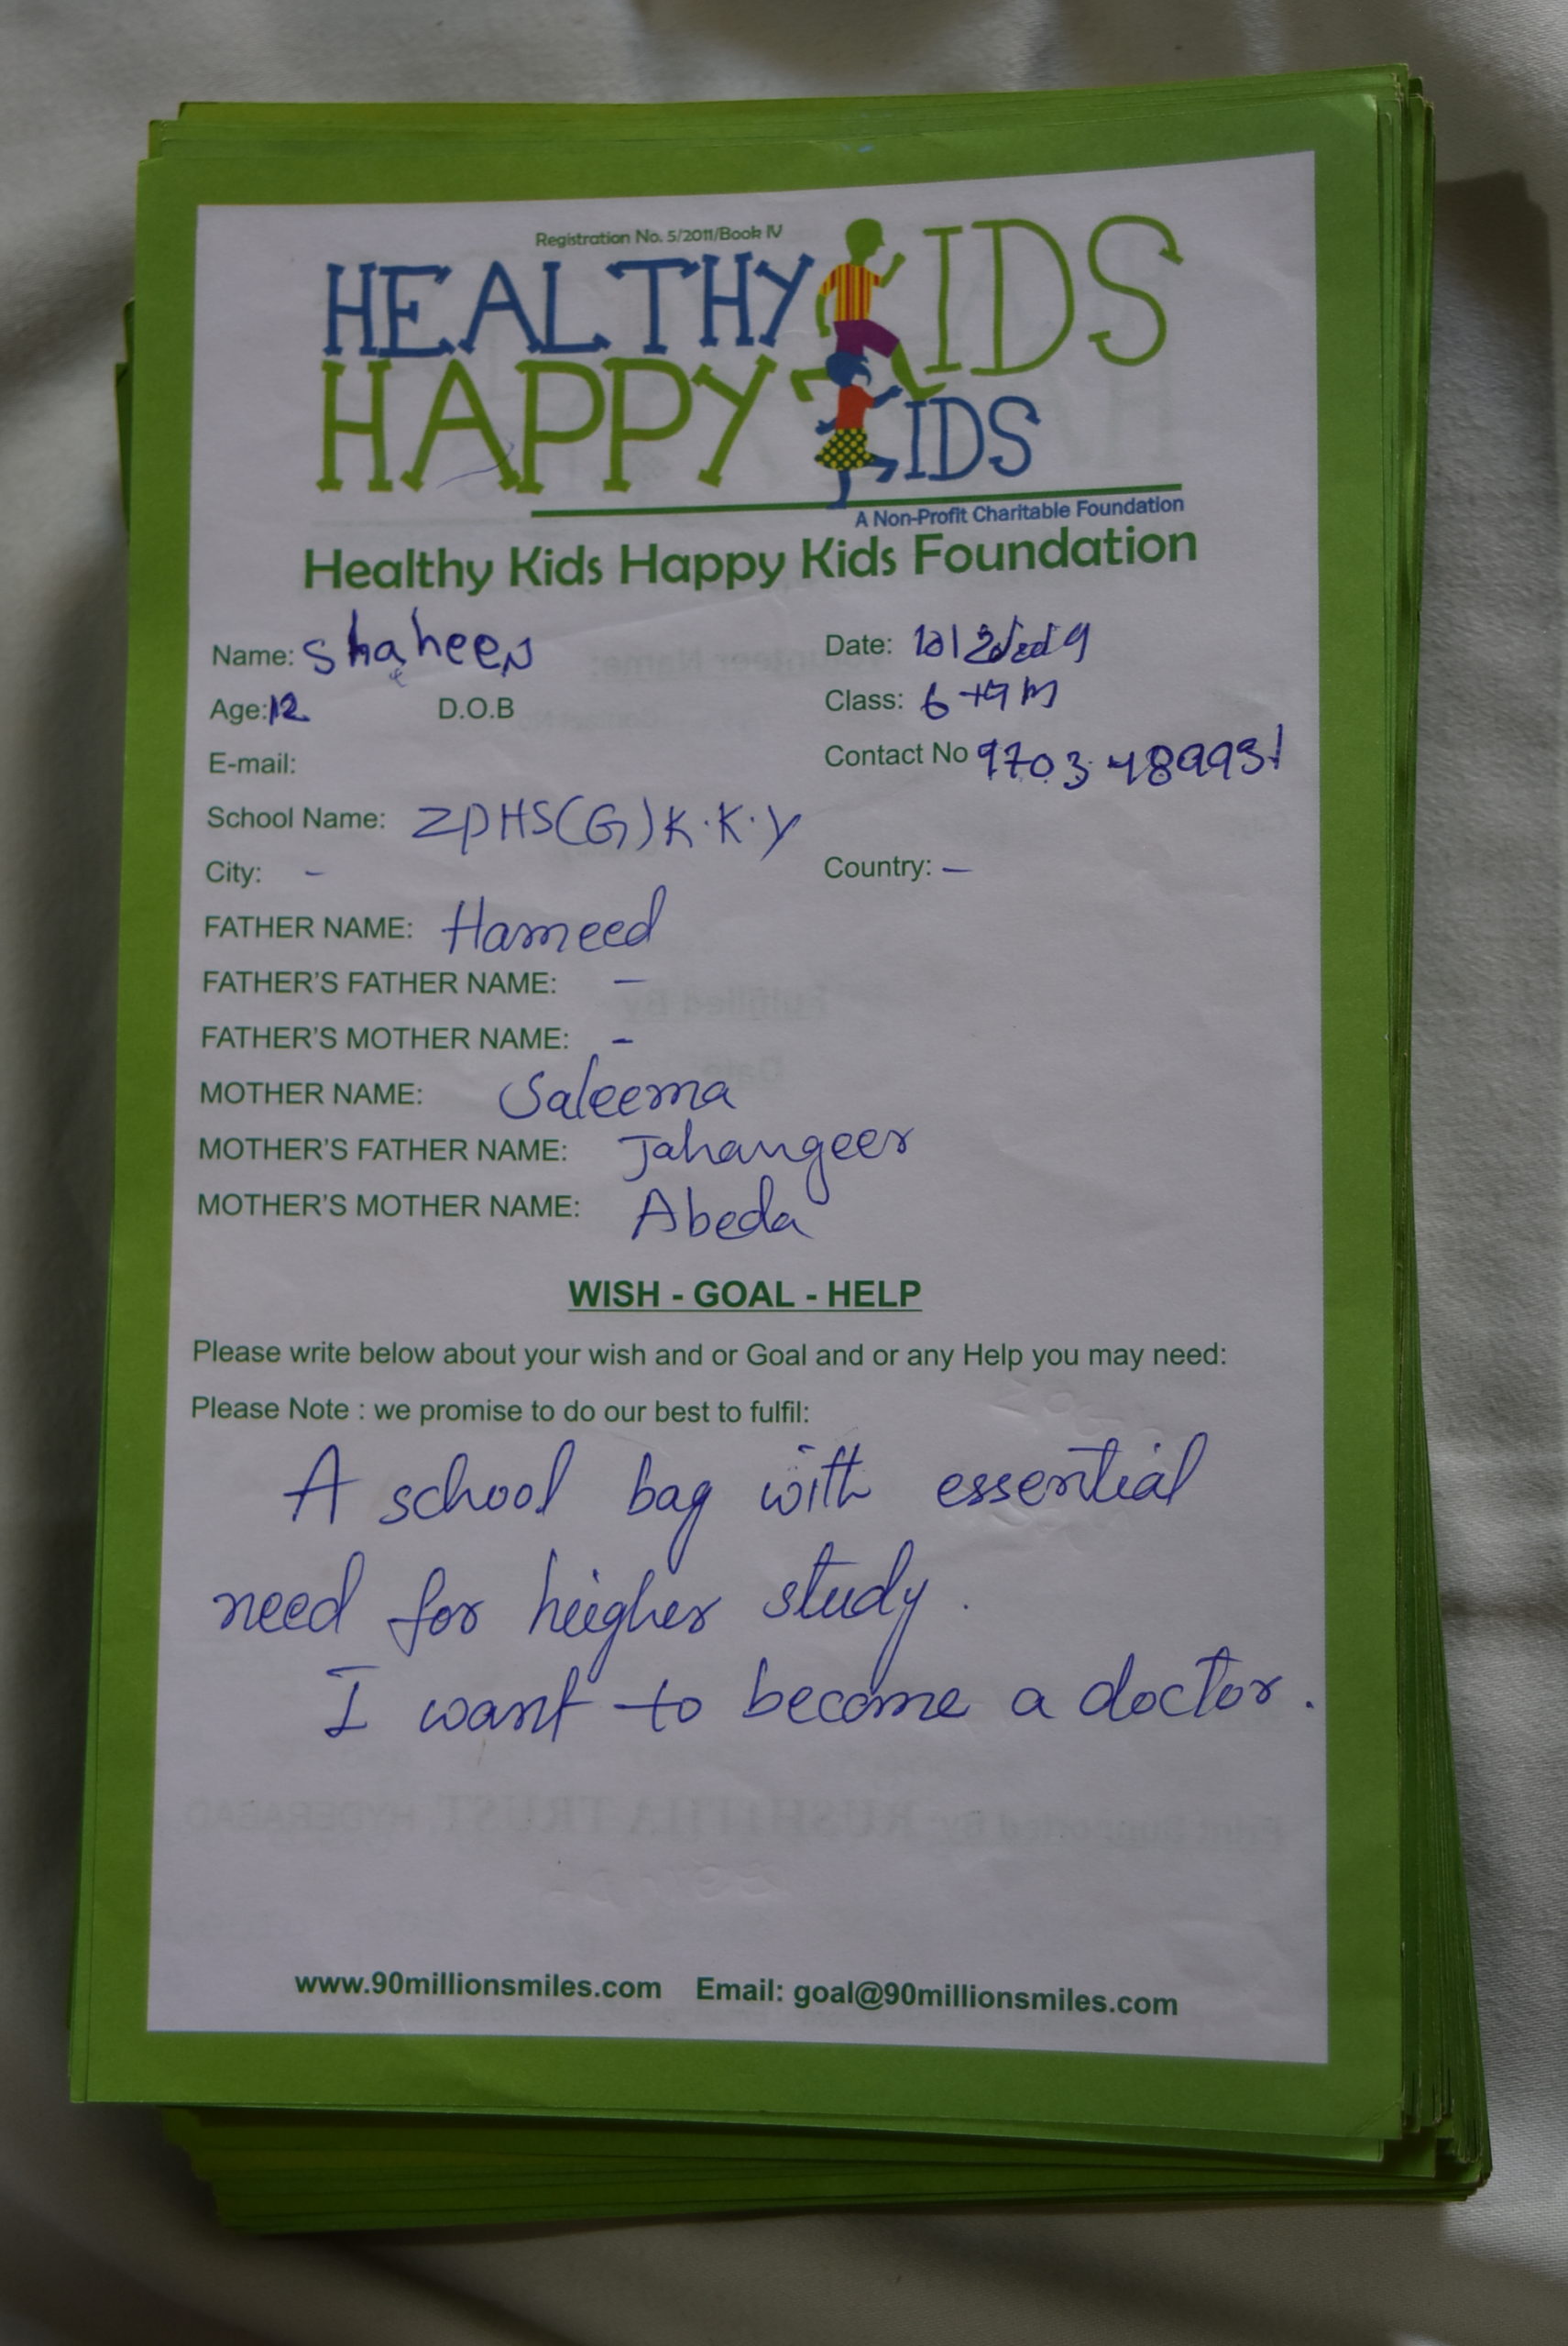 Registration No. 5/2011/Book IV
HEALTHY KIDS
HAPPY KIDS
A Non-Profit Charitable Foundation
Healthy Kids Happy Kids Foundation
Name: Shaheen Date:
Age: 12 D.O.B Class: 6th M
E-mail: Contact No
School Name: ZPHS(G)K.K.Y
City: - Country: -
FATHER NAME: Hameed
FATHER'S FATHER NAME: -
FATHER'S MOTHER NAME: -
MOTHER NAME: Saleema
MOTHER'S FATHER NAME: Jahangeer
MOTHER'S MOTHER NAME: Abeda
WISH - GOAL - HELP
Please write below about your wish and or Goal and or any Help you may need:
Please Note : we promise to do our best to fulfil:
A school bag with essential
need for heigher study.
I want to become a doctor.
www.90millionsmiles.com Email: goal@90millionsmiles.com